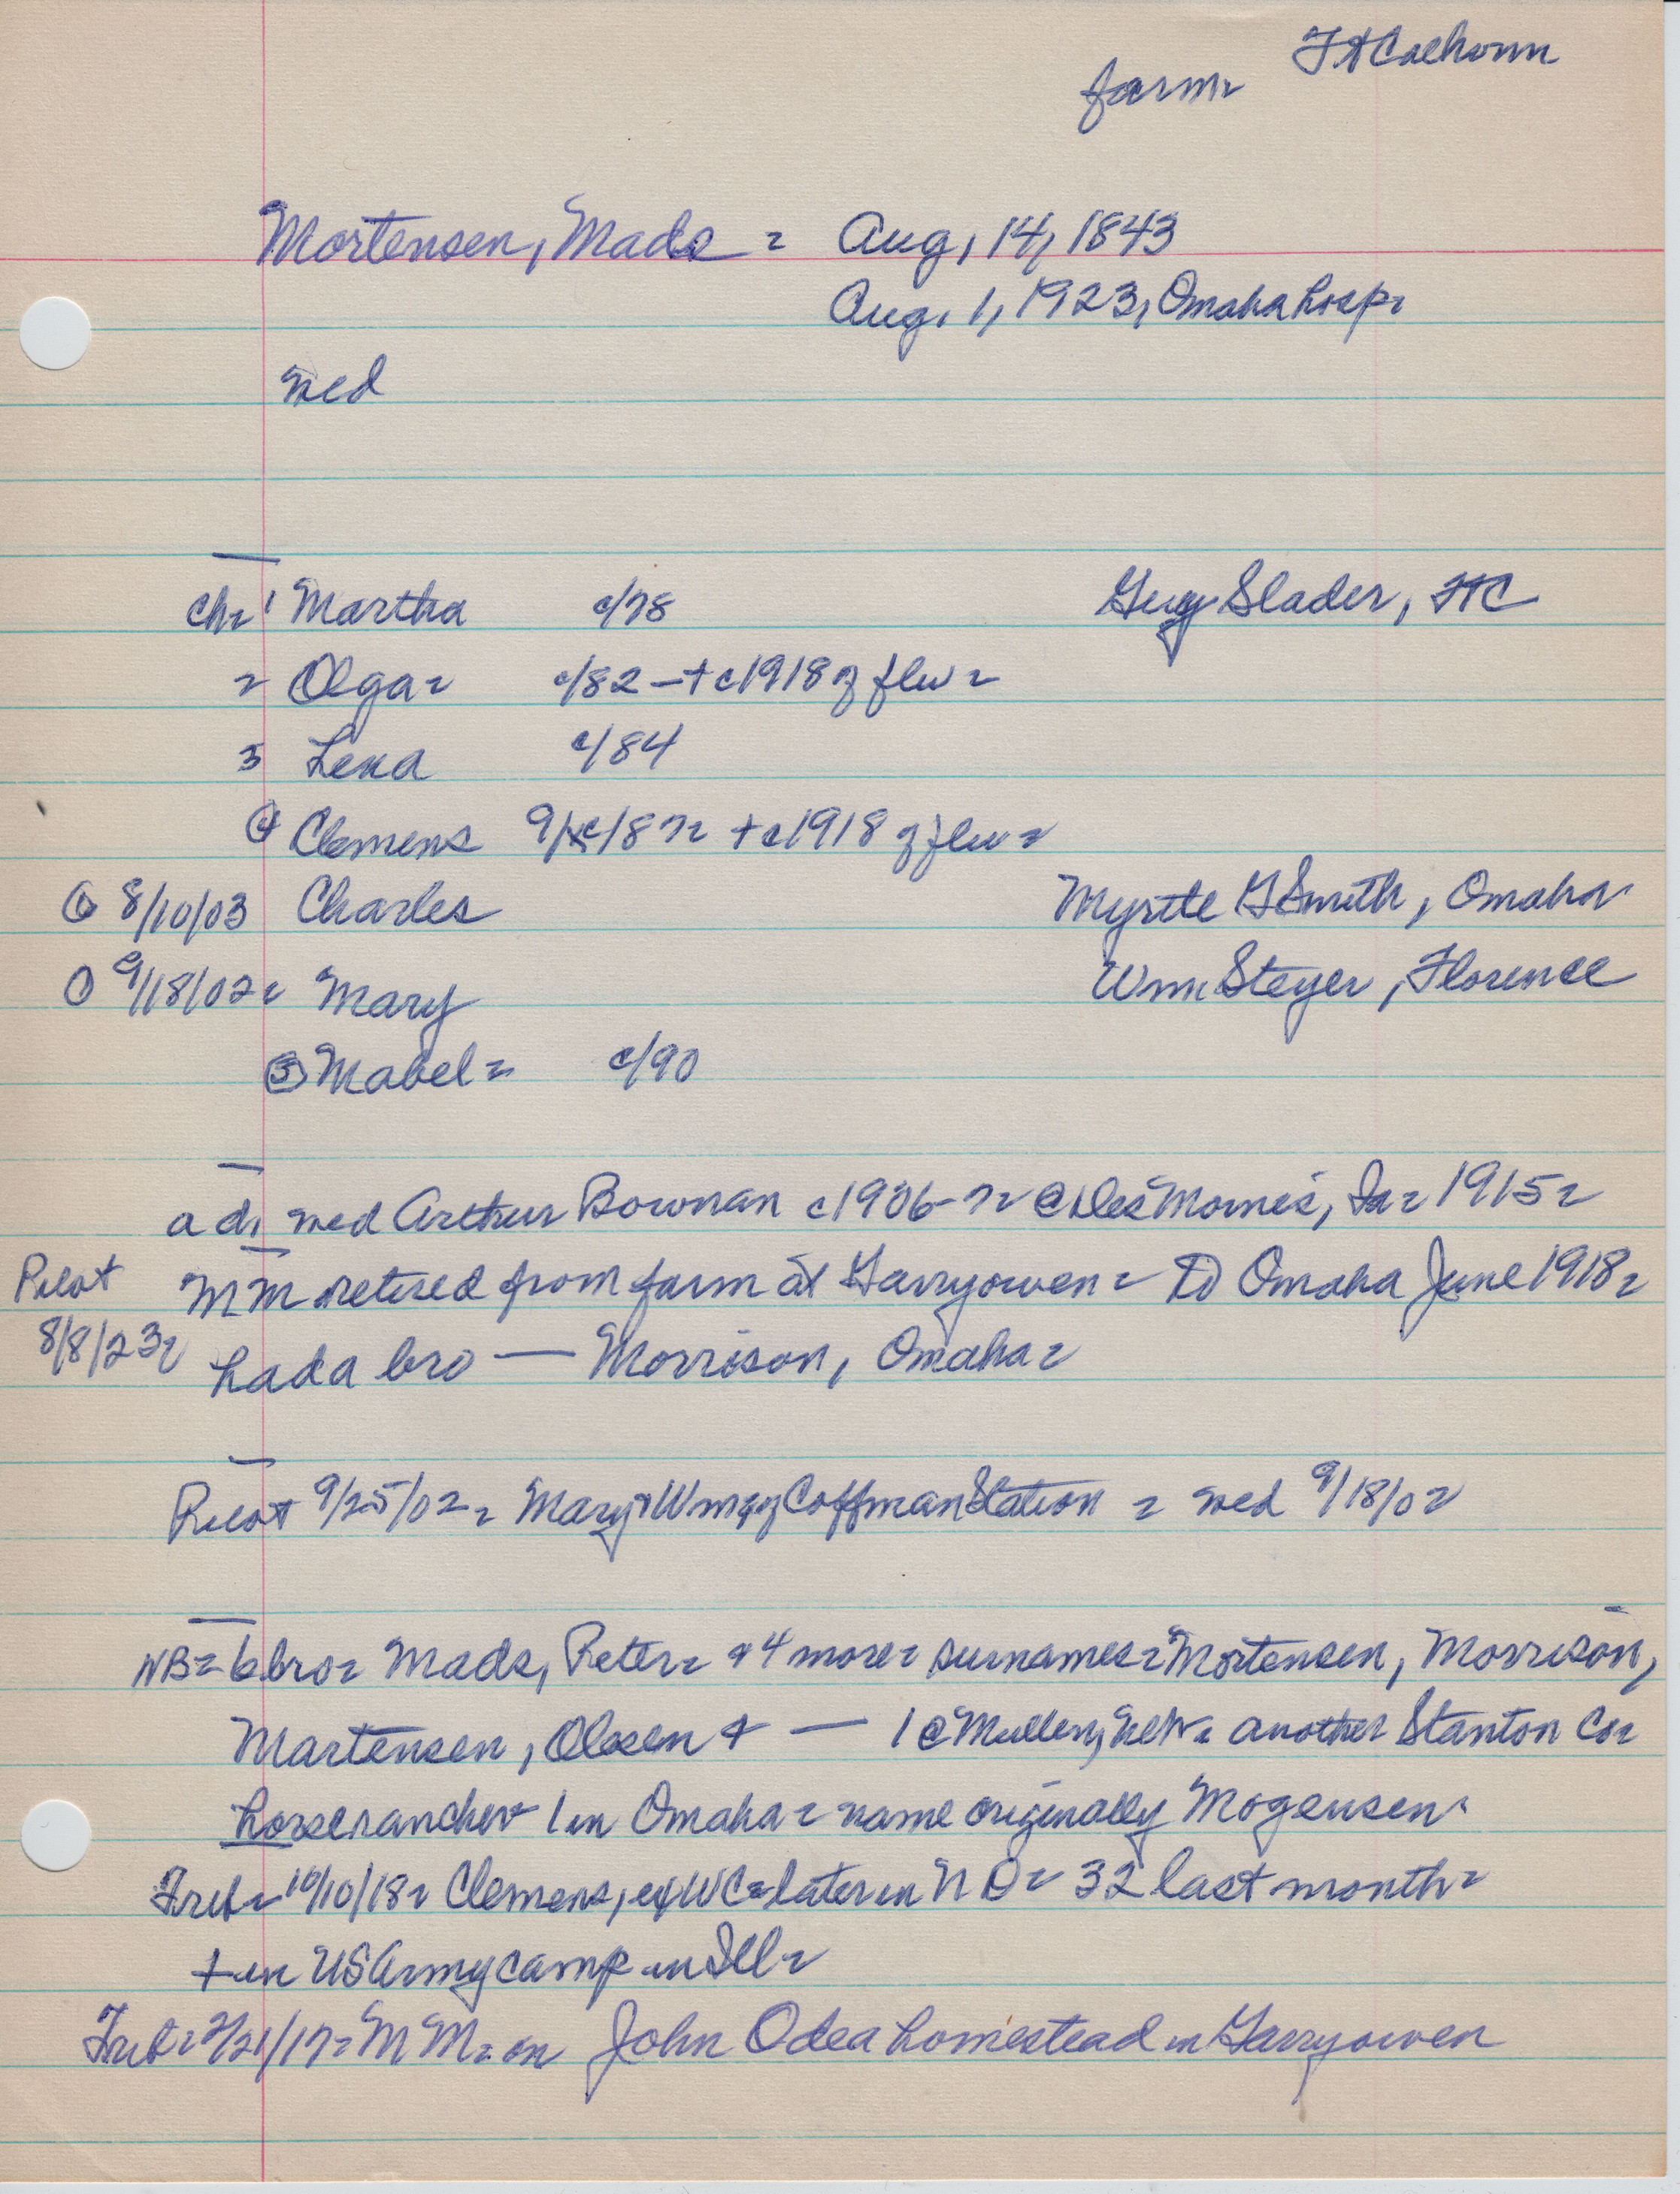 Ft Calhoun
farm
Mortensen, Mads = Aug, 14, 1843
Aug. 1, 1923, Omaha hosp.
wed
ch= 1 Martha c/78 Guy Slader, FtC
2 Olga= c/82 - + c1918 of flu =
3 Lena c/84
4 Clemens 9/c/87= + c1918 of flu =
8/10/03 Charles Myrtle G Smith, Omaha
9/18/02= Mary Wm Steyer, Florence
5 Mabel = c/90
ad, wed Arthur Bowman c1906-7= @ Des Moines, Ia = 1915=
Pilot MM retired from farm at Garryowen = To Omaha June 1918=
8/8/23= had a bro — Morrison, Omaha =
Pilot 9/25/02 = Mary + Wm of Coffman Station = wed 9/18/02
NB= 6 bro= Mads, Peter= + 4 more= surnames = Mortensen, Morrison,
Martensen, Olesen + — 1 @ Mullen, Neb= another Stanton Co=
horserancher 1 in Omaha = name originally Mogensen.
Trib= 10/10/18= Clemens, of WC= later in ND= 32 last month=
+ in US Army camp in Ill=
Trib= 2/21/17= MM= on John Odea homestead in Garryowen